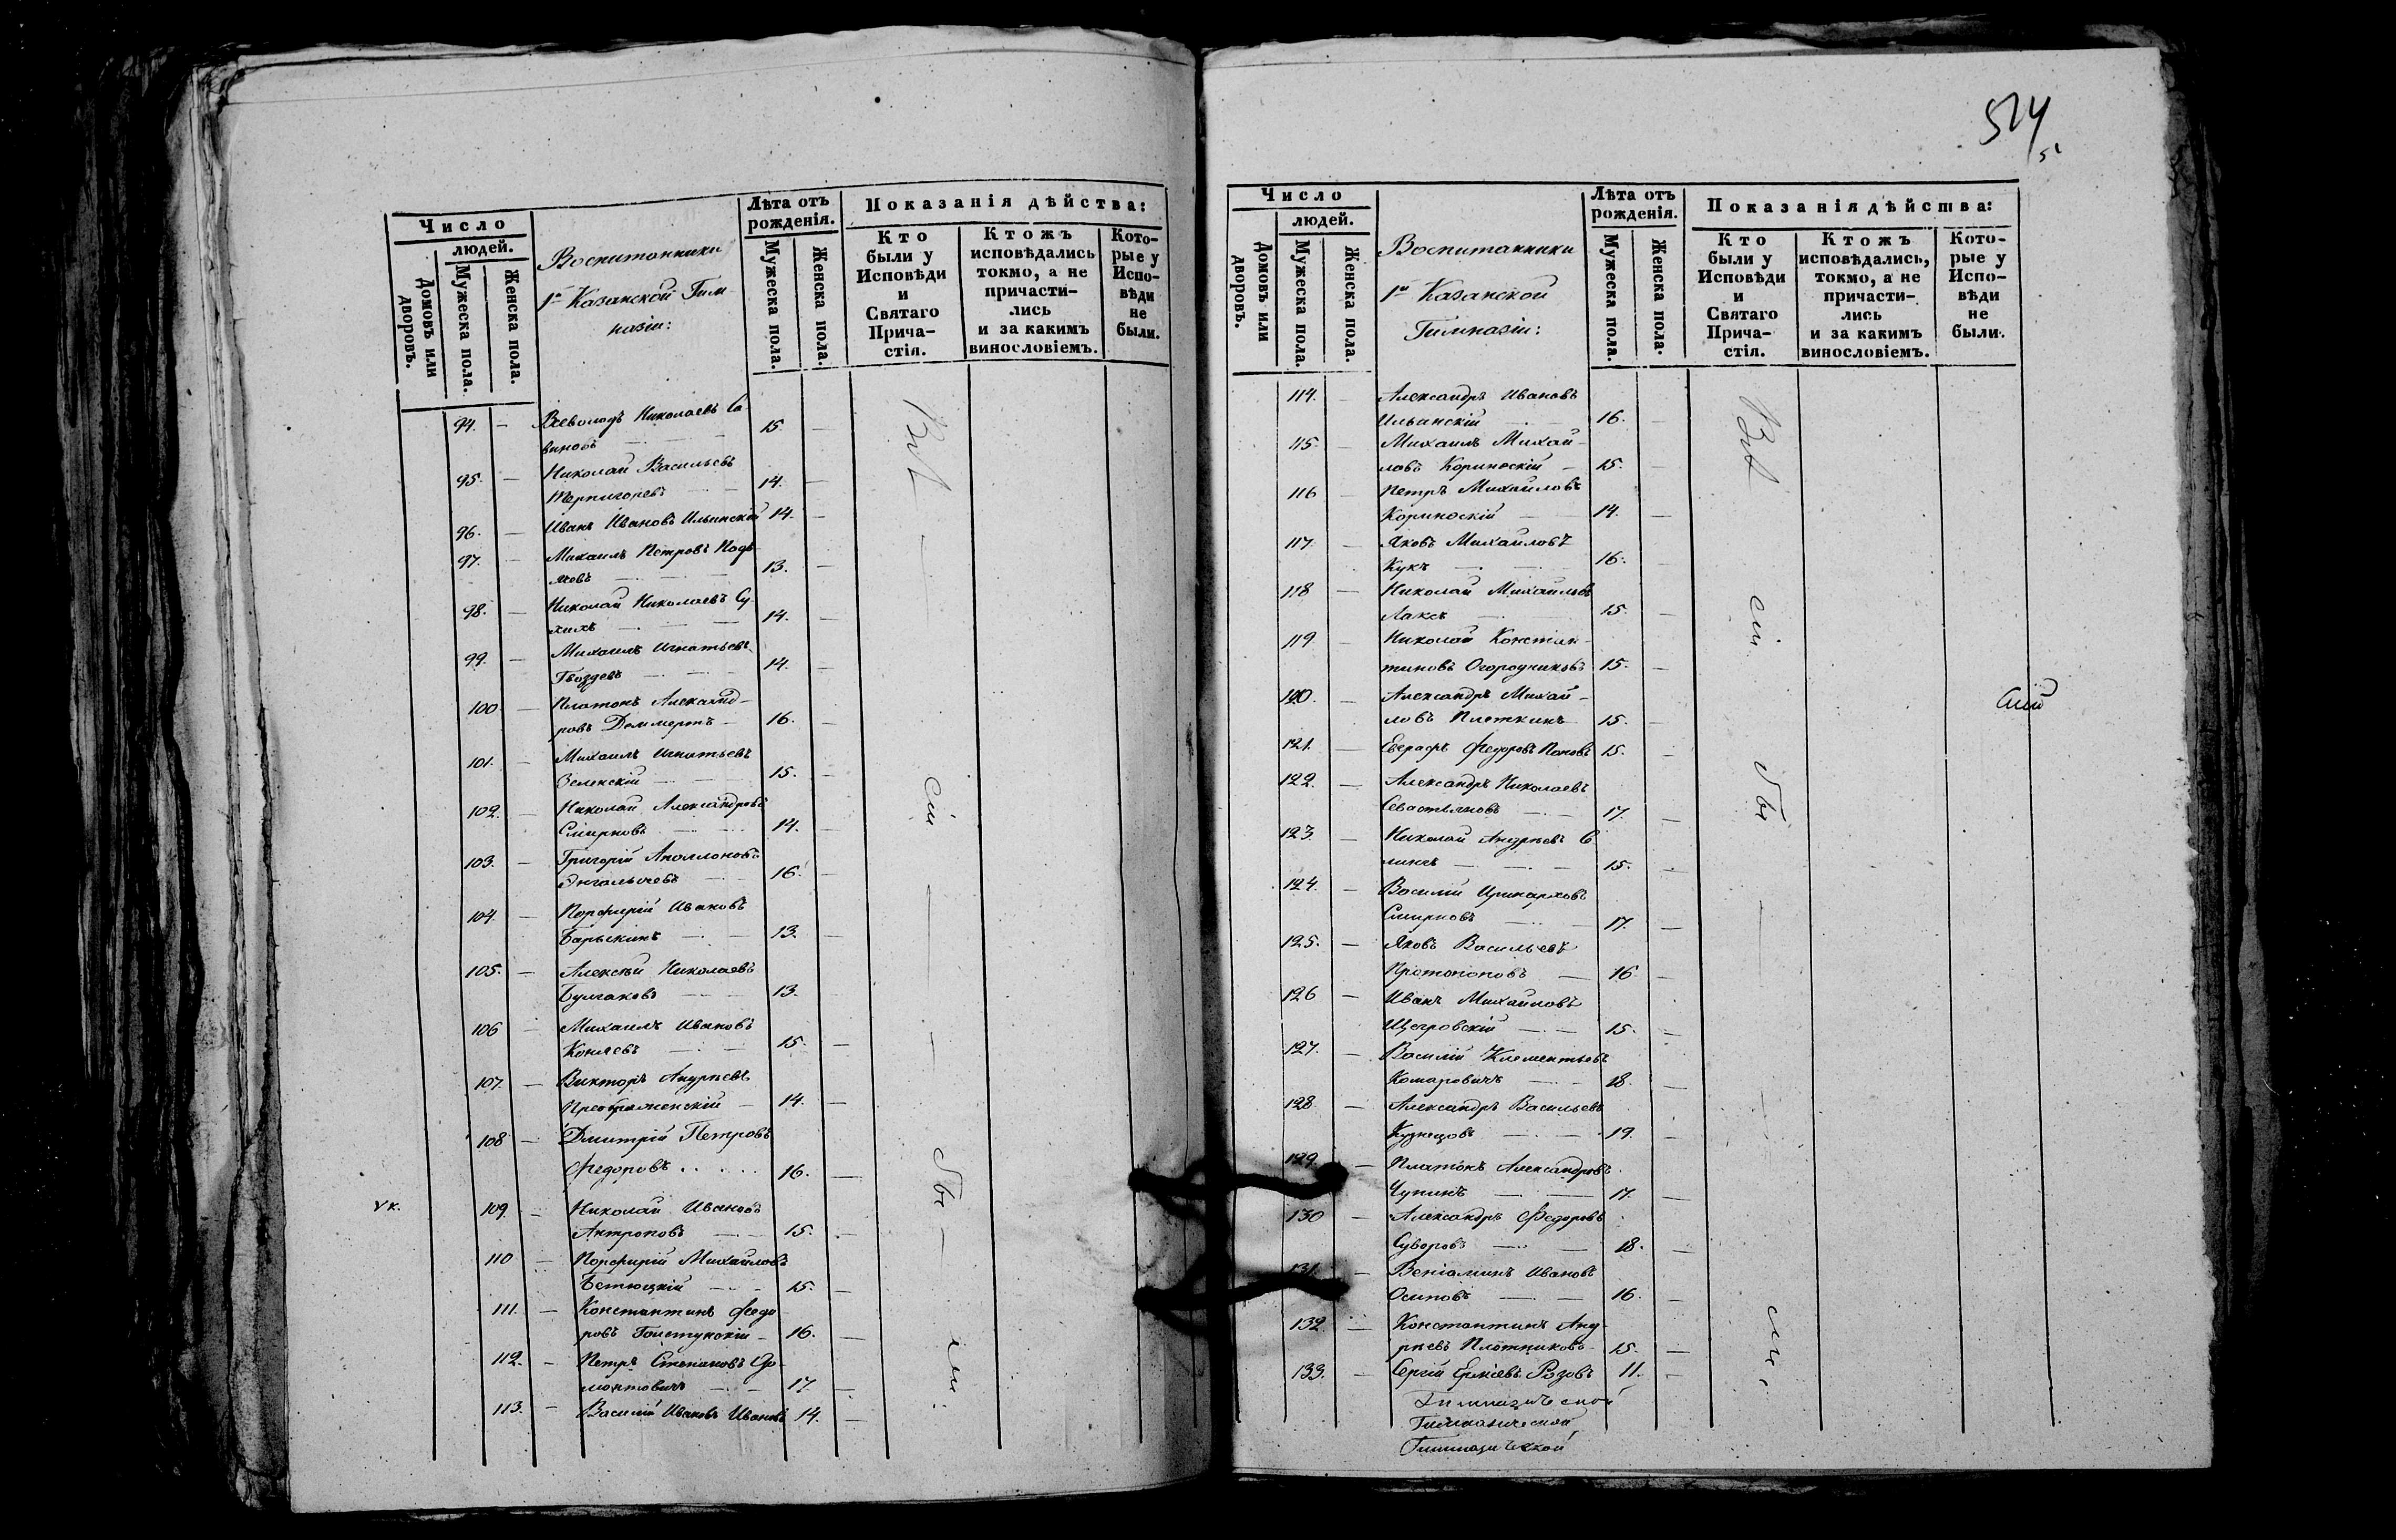 Число
людей.
Домовъ или дворовъ.
Мужеска пола.
Женска пола.
Воспитанники
1й Казанской Гим-
назіи:
Лѣта отъ
рожденія.
Мужеска пола.
Женска пола.
Показанія дѣйства:
Кто
были у
Исповѣди
и
Святаго
Прича-
стія.
Ктожъ
исповѣдались
токмо, а не
причасти-
лись
и за какимъ
винословіемъ.
Кото-
рые у
Испо-
вѣди
не
были.
94. — Всеволодъ Николаевъ Са-
виновъ — 15. —
95. — Николай Васильевъ
Терпигоревъ — 14. —
96. — Иванъ Ивановъ Ильинскій 14. —
97. — Михаилъ Петровъ
13. —
98. — Николай Николаевъ Су-
хихъ — 14. —
99. — Михаилъ Игнатьевъ
Гвоздевъ — 14. —
100. — Платонъ Александ-
ровъ Деммертъ — 16. —
101. — Михаилъ Игнатьевъ
Зеленскій — 15. —
102. — Николай Александровъ
Смирновъ — 14. —
103. — Григорій Аполлоновъ
Энгалычевъ — 16. —
104. — Порфирій Ивановъ
Барыскинъ — 13. —
105. — Алексѣй Николаевъ
Булгаковъ — 13.
106 — Михаилъ Ивановъ
Коняевъ — 15. —
107. — Викторъ Андреевъ
Преображенскій — 14. —
108 — Дмитрій Петровъ
Федоровъ . . . . 16. —
109. — Николай Ивановъ
Антроповъ — 15. —
110 — Порфирій Михайловъ
15. —
111. — Константинъ Федо-
ровъ 16. —
112. — Петръ Степановъ До-
монтовичъ — 17. —
113. — Василій Ивановъ Ивановъ 14. —
сіи
514
Число
людей.
Домовъ или дворовъ.
Мужеска пола.
Женска пола.
Воспитанники
1й Казанской
Гимназіи:
Лѣта отъ
рожденія.
Мужеска пола.
Женска пола.
Показанія дѣйства:
Кто
были у
Исповѣди
и
Святаго
Прича-
стія.
Ктожъ
исповѣдались,
токмо, а не
причасти-
лись
и за какимъ
винословіемъ.
Кото-
рые у
Испо-
вѣди
не
были.
114. — Александръ Ивановъ
Ильинскій — 16. —
115. — Михаилъ Михай-
ловъ Коринѳскій — 15. —
116 — Петръ Михайловъ
Коринѳскій — 14. —
117. — Яковъ Михайловъ
Кукъ — 16. —
118 — Николай Михайловъ
Лаксъ — 15. —
119. — Николай Констан-
тиновъ Огородниковъ 15. —
120. — Александръ Михай-
ловъ Плеткинъ 15. —
121. — Евграфъ Федоровъ Поповъ 15. —
122. — Александръ Николаевъ
Севастьяновъ — 17. —
123. — Николай Андреевъ
15. —
124. — Василій Иринарховъ
Смирновъ — 17. —
125. — Яковъ Васильевъ
Протопоповъ — 16 —
126 — Иванъ Михайловъ
Щегровскій — 15. —
127. — Василій Клементьевъ
Комаровичъ — 18. —
128. — Александръ Васильевъ
Кузнецовъ — 19. —
129. — Платонъ Александровъ
Чупинъ — 17. —
130 — Александръ Федоровъ
Суворовъ — 18. —
131. — Веніаминъ Ивановъ
Осиповъ — 16. —
132. — Константинъ Анд-
реевъ Плотниковъ 15. —
133. — Сергій Розовъ 11. —
Гимназической
Гимназической
Гимназической
сіи